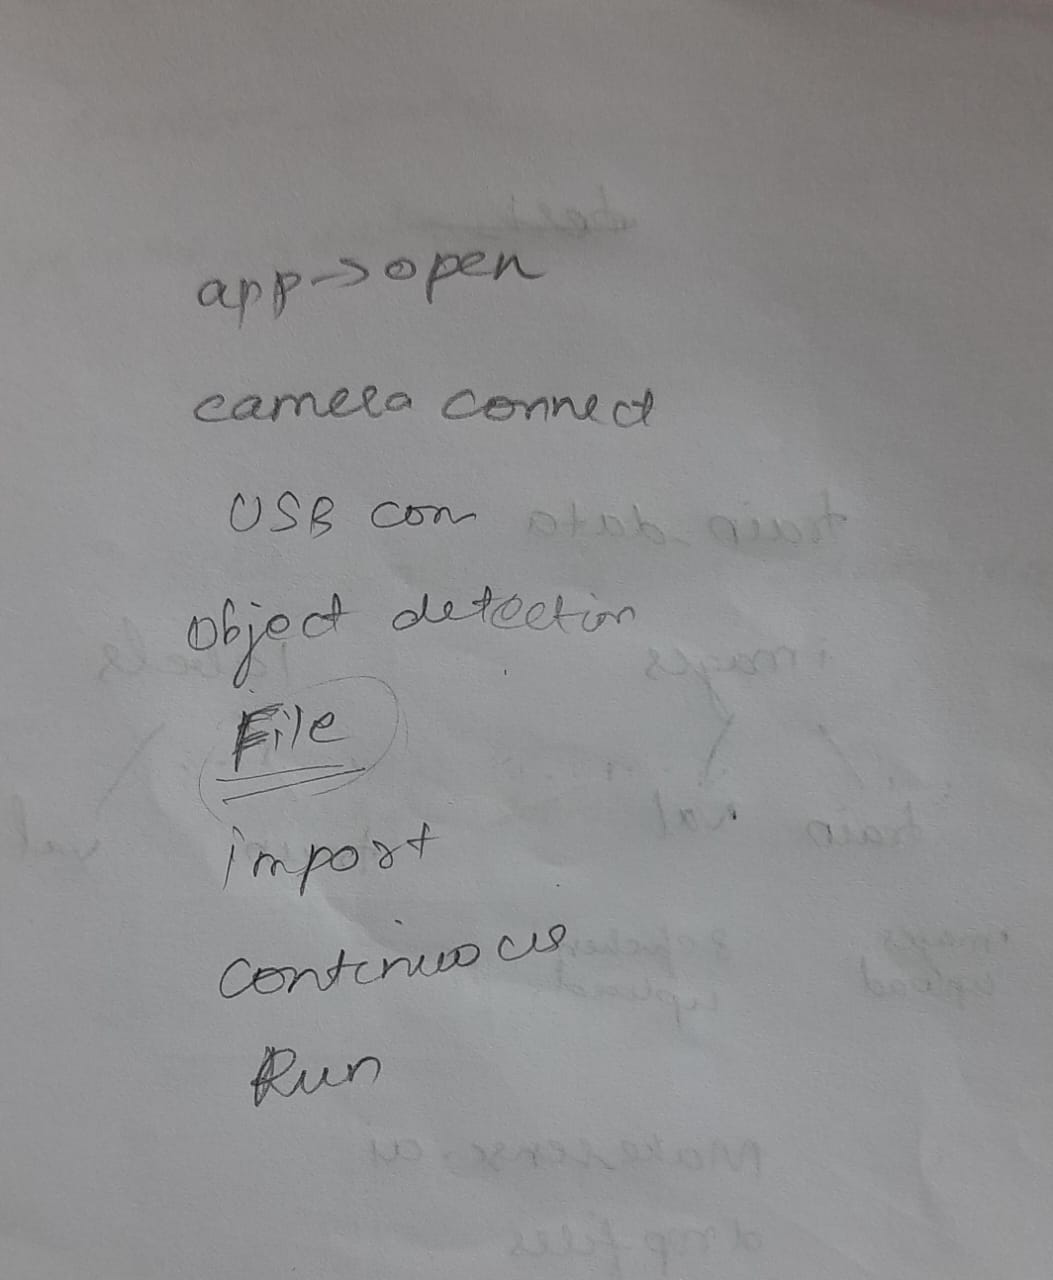 app → open
camera connect
USB con
object detection
File
import
continuous
Run